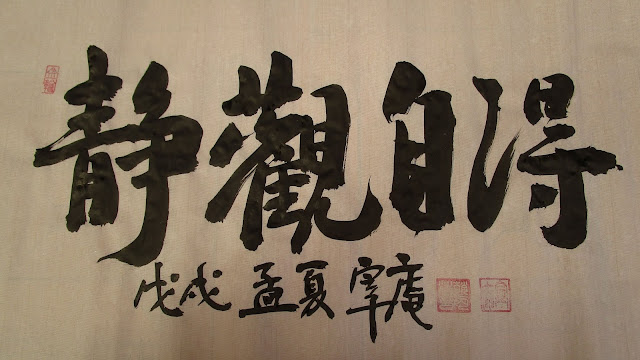 靜觀自得
戊戌 孟夏 宰庵